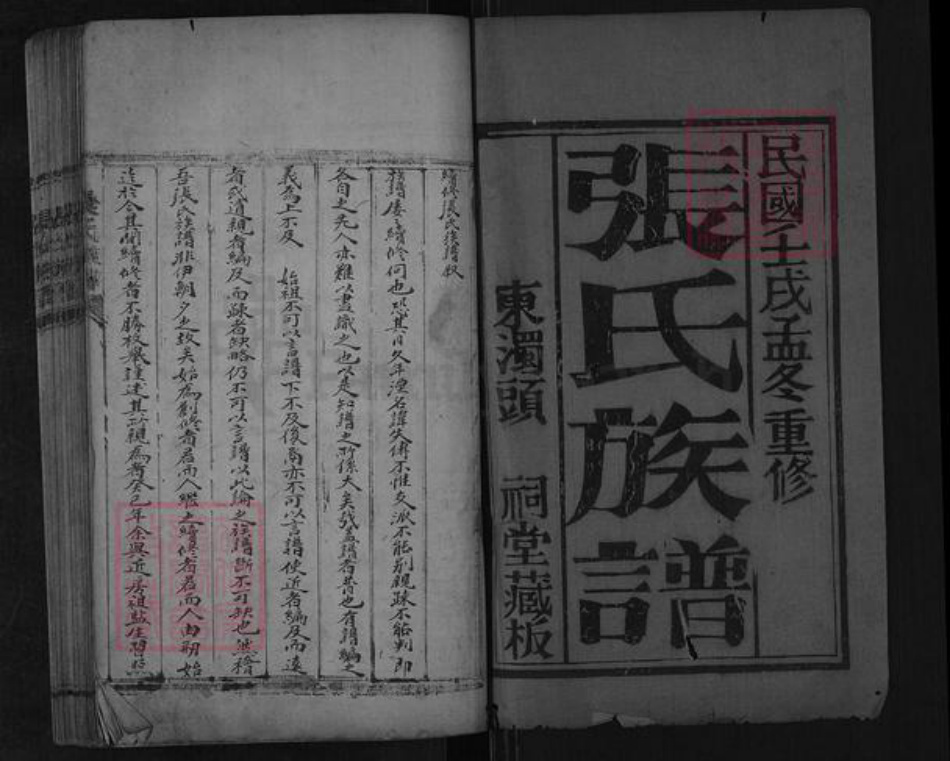 民國壬戌孟冬重修
張氏族譜
東濁頭 祠堂藏板
續修張氏族譜叙
族譜屢屢續修何也恐其日久年湮名諱失傳不惟支派不能别親疎不能判即
各自之先人亦難以盡識之也以是知譜之所係大矣哉蓋譜者普也有譜編之
義焉上不及 始祖不可以言譜下不及後裔亦不可以言譜使近者編及而遠
者或遺親者編及而疎者缺略仍不可以言譜以此論之族譜斷不可缺也然稽
吾張氏族譜非伊朝夕之故矣始為創修者君而人繼之續修者君而人由明始
迄於今其間續修者不勝枚舉謹述其所親為者癸巳年余與近房祖監生